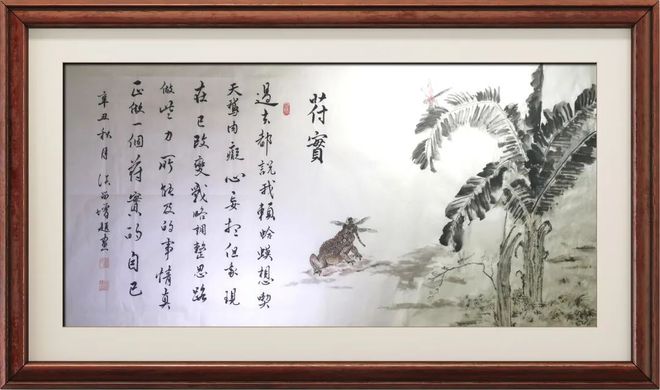 苻實
過去都說我賴蛤蟆想喫
天鵝肉癡心妄想但我現
在已改變戰略調整思路
做些力所能及的事情真
正做一個苻實的自己
辛丑秋月